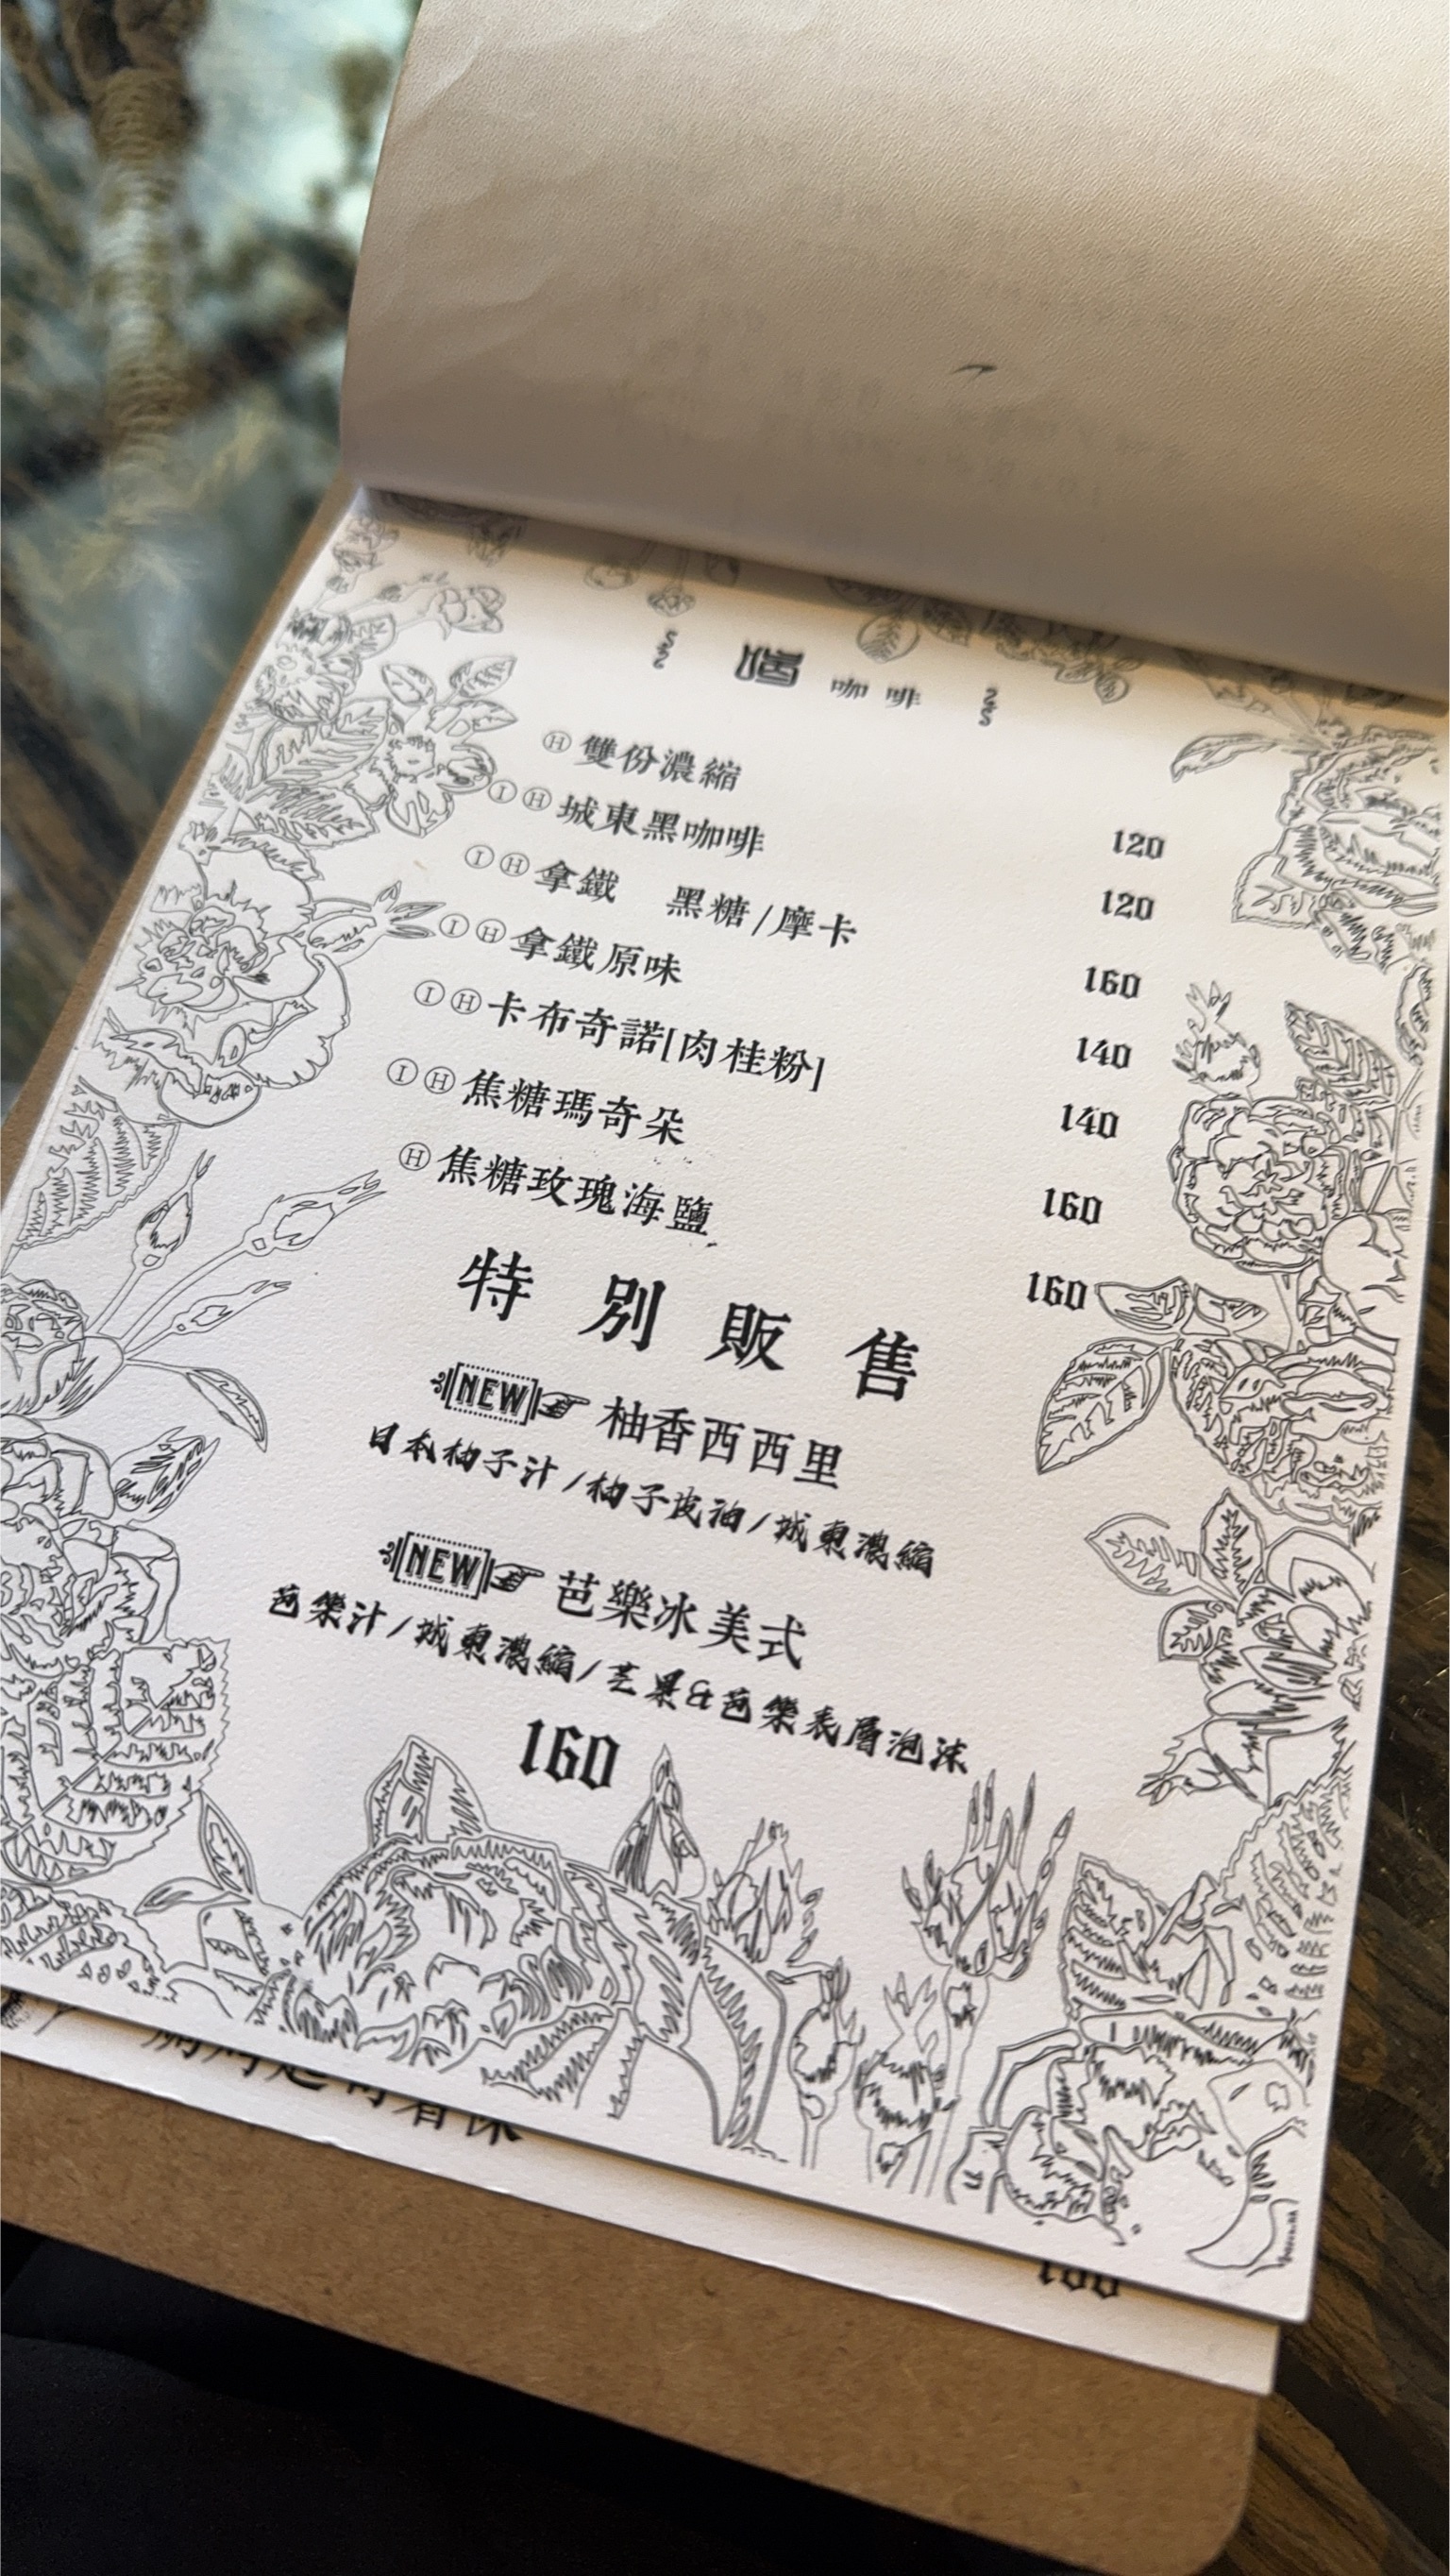 咖啡
Ⓗ 雙份濃縮 120
Ⓘ Ⓗ 城東黑咖啡 120
Ⓘ Ⓗ 拿鐵 黑糖/摩卡 160
Ⓘ Ⓗ 拿鐵原味 140
Ⓘ Ⓗ 卡布奇諾[肉桂粉] 140
Ⓘ Ⓗ 焦糖瑪奇朵 160
Ⓗ 焦糖玫瑰海鹽 160
特別販售
NEW 柚香西西里
日本柚子汁/柚子皮油/城東濃縮
NEW 芭樂冰美式
芭樂汁/城東濃縮/芒果&芭樂表層泡沫
160